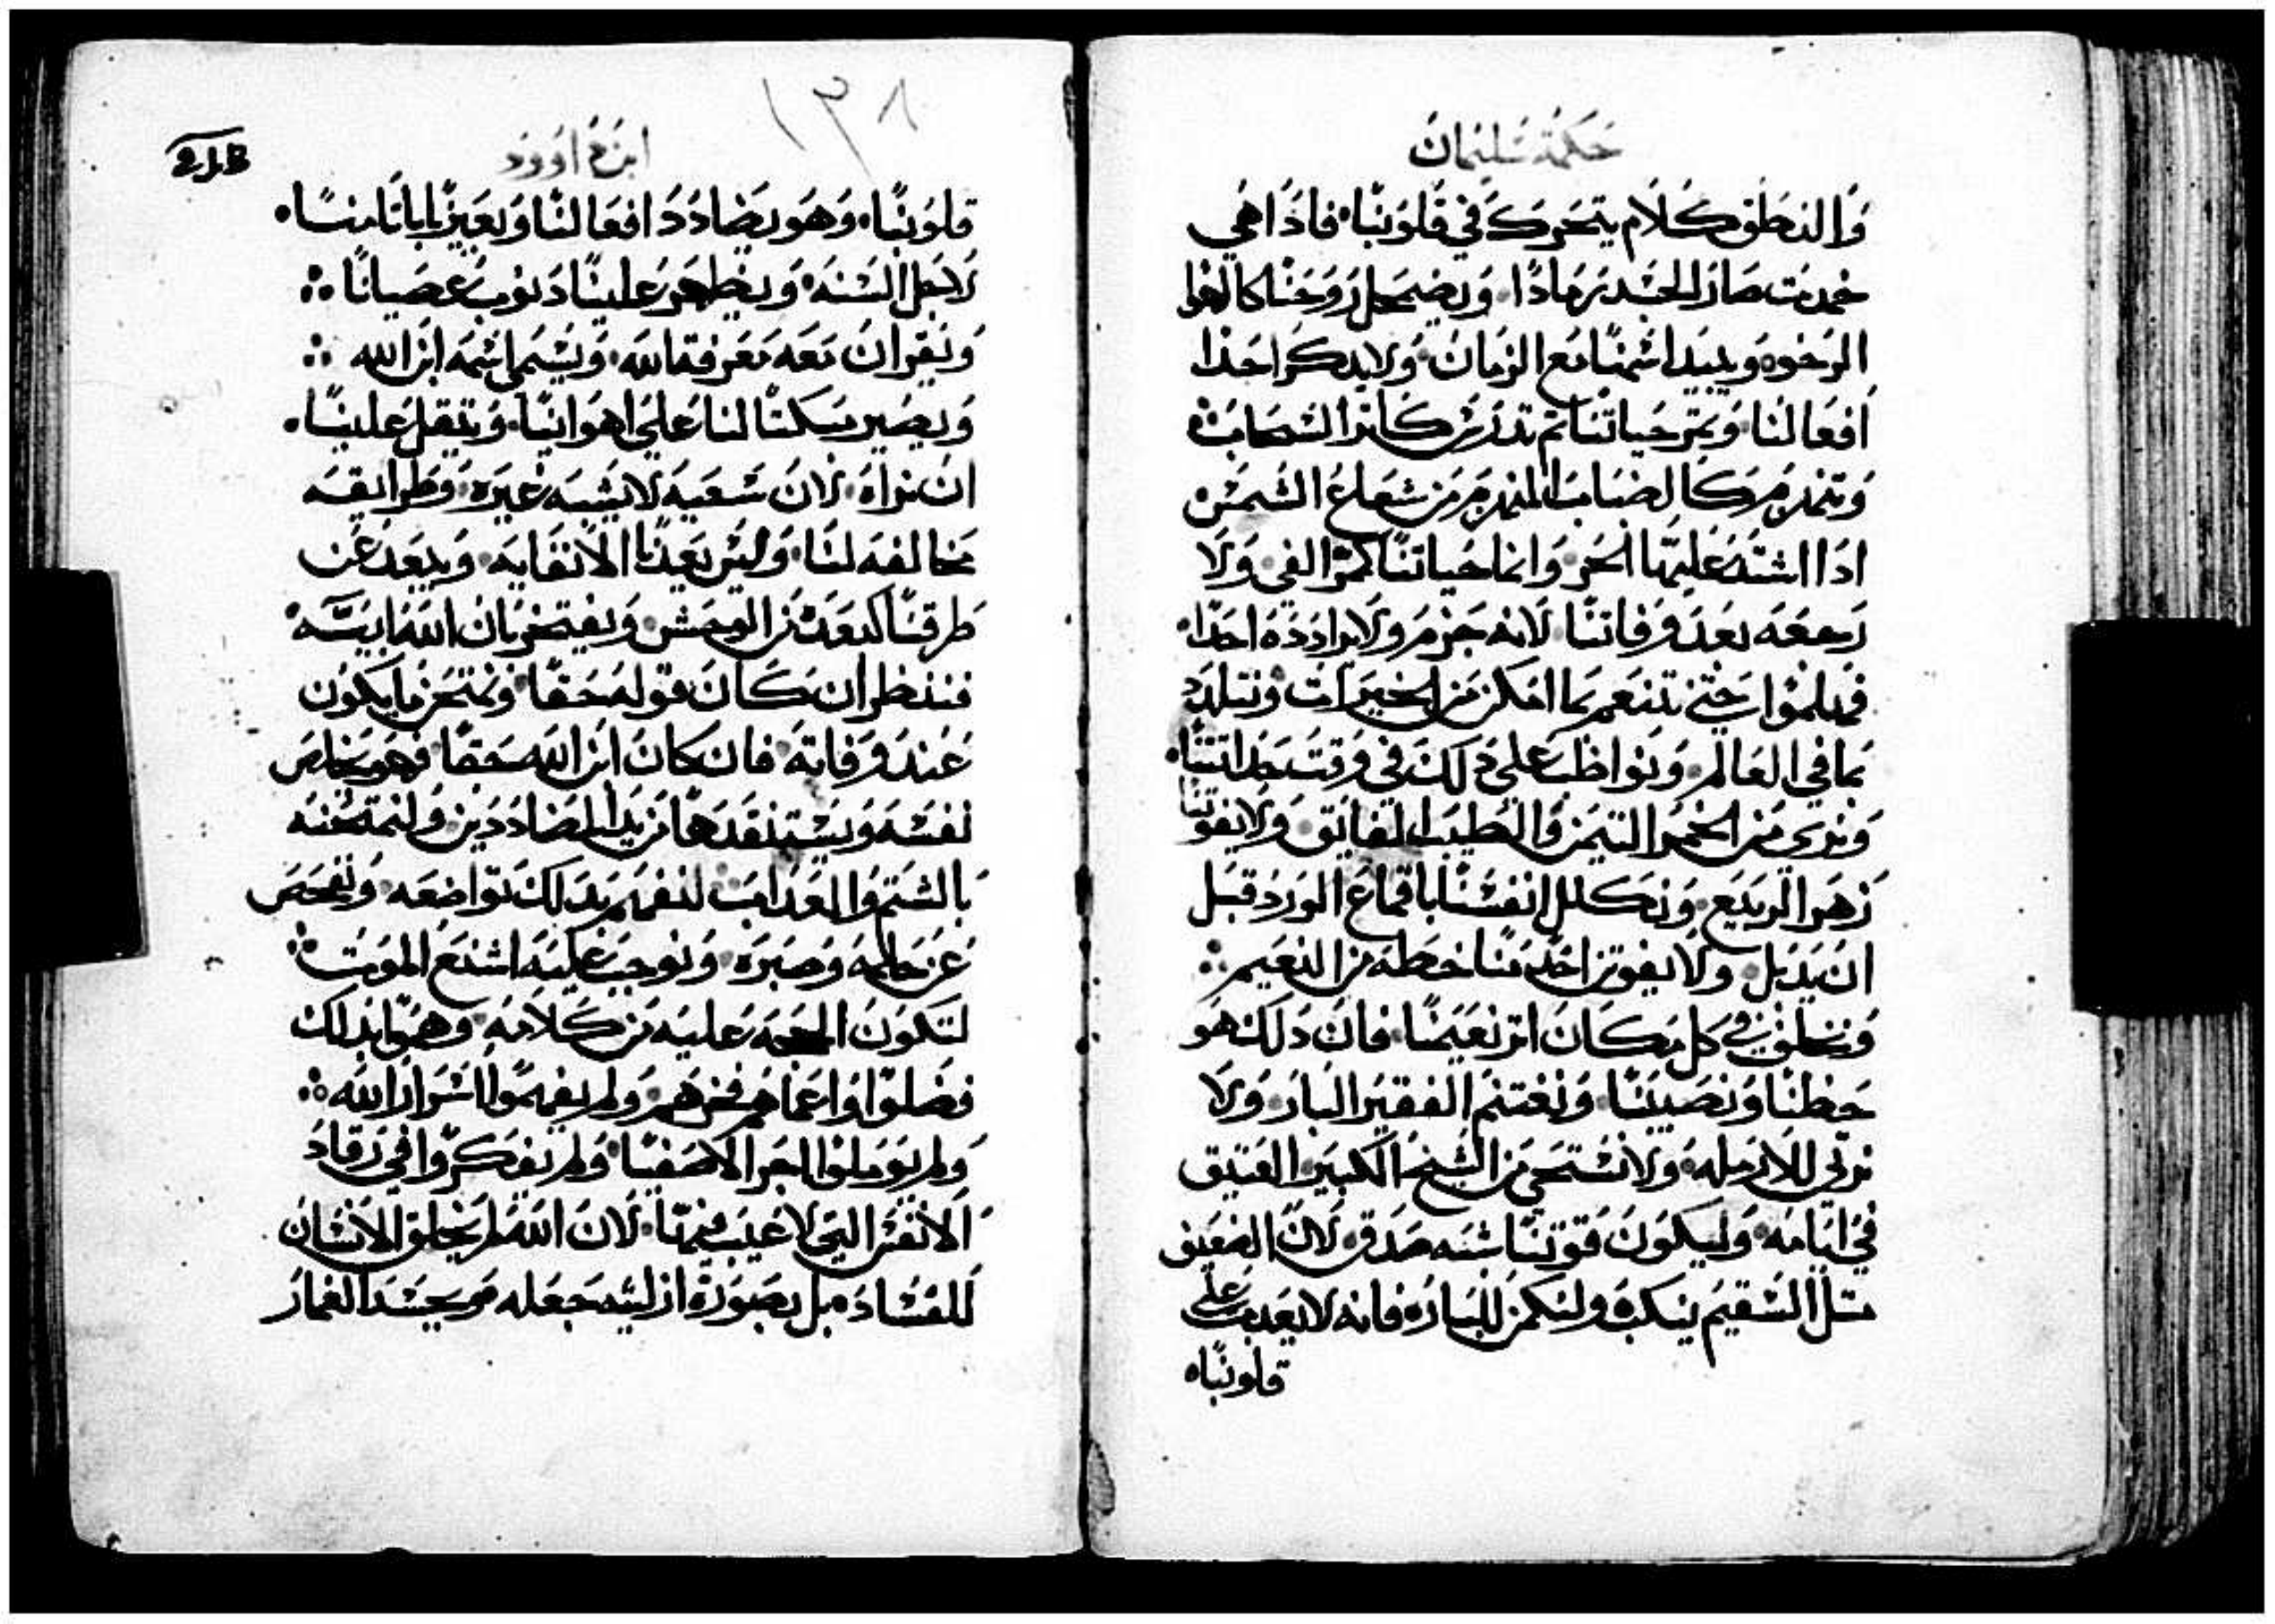 حكمة سليمان
والنطق كلام يتحرك في قلوبنا فاذا هي
خمدت صار الجسد رمادا ويضمحل روحنا كالهوا
الرخوه ويبيد اسمنا مع الزمان ولا يدكر احدا
افعالنا وتمر حياتنا ثم تدرس كاثر السحاب
وتنهزم كالضباب المنهزم من شعاع الشمس
ادا اشتد عليها الحر وانما حياتنا كمر الفي ولا
رجعه بعد وفاتنا لانه جزم ولا يرادده احدا
فهلموا حتي نتنعم بما امكن من الخيرات ونتلدد
بما في العالم ونواظب علي دلك في وقت حداتتنا
ونروي من الخمر التمين والطيب الفايق ولا يفوتنا
زهر الربيع ونكلل انفسنا باقماع الورد قبل
ان يدبل ولا يفوتن احد منا حظه من النعيم
ونخلف في كل مكان اتر نعيمنا فان دلك هو
حظنا ونصيبنا ونغتنم الفقير البار ولا
نرتي للارمله ولا نستحي من الشيخ الكبير العتيق
في ايامه وليكون قوتنا سنه صدق لان الضعيف
متل السقيم ينكبه ولنكمن للبار فانه لا يعدب علي
قلوبنا
١٣٨
ابن داوود
218
قلوبنا وهو يضادد افعالنا ويعيرنا باتامنا
لاجل السنه ويظهر علينا دنوب عصيانا
ونقر ان معه معرفة الله ويسما اسمه ابن الله
ويصير مبكتا لنا علي اهوانيا ويتقل علينا
ان نراه لان سعيه لا يشبه غيره وطرايقه
مخالفه لنا وليس يعدنا الا نفايه ويبعد عن
طرقنا كبعده من الوحش ويفتخر بان الله ابيه
فننظر ان كان قوله حقا ونمتحن ما يكون
عند وفاته فان كان ابن الله حقا فهو يخلص
نفسه ويستنقدها من يد المضاددين ولنمتحنه
بالشتم والعداب لنفهم بدلك تواضعه ونفحص
عن حلمه وصبره ونوجب عليه اشنع الموت
لتكون الحجه عليه من كلامه وهموا بدلك
فضلوا واعماهم فخرهم ولم يفهموا اسرار الله
ولم يوملوا اجر الاصفيا ولم يفكروا في رقاد
الانفس التي لا عيب فيها لان الله لم يخلق الانسان
للفساد بل بصورة ازليته جعله وبحسد الغمار